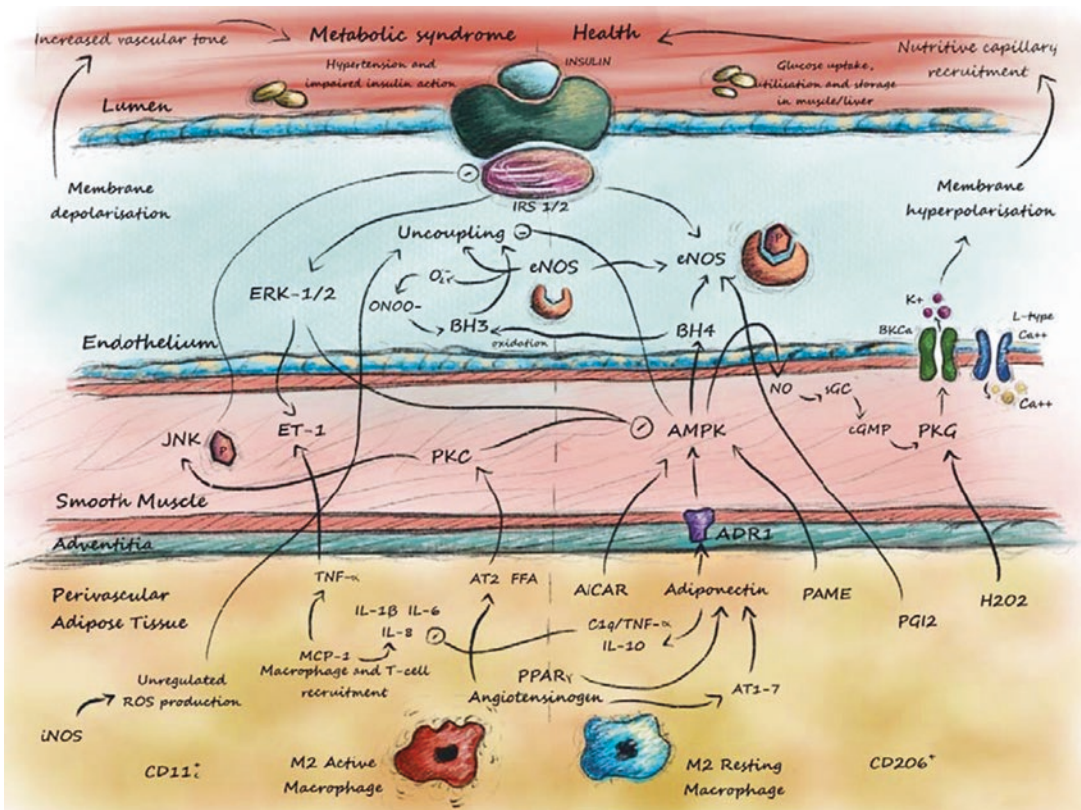 Increased vascular tone
Metabolic syndrome
Health
Nutritive capillary
recruitment
Hypertension and
impaired insulin action
INSULIN
Glucose uptake,
utilisation and storage
in muscle/liver
Lumen
Membrane
depolarisation
IRS 1/2
Membrane
hyperpolarisation
Uncoupling
-
-
eNOS
eNOS
P
O2-
ERK-1/2
ONOO-
BH3
oxidation
BH4
K+
BKCa
L-type
Ca++
Ca++
Endothelium
NO
sGC
cGMP
PKG
JNK
P
ET-1
PKC
-
AMPK
Smooth Muscle
Adventitia
ADR1
Perivascular
Adipose Tissue
TNF-α
AT2 FFA
AICAR
Adiponectin
PAME
PGI2
H2O2
IL-1β IL-6
IL-8
-
C1q/TNF-α
IL-10
MCP-1
Macrophage and T-cell
recruitment
PPARγ
Angiotensinogen
AT1-7
Unregulated
ROS production
iNOS
CD11
M2 Active
Macrophage
M2 Resting
Macrophage
CD206+